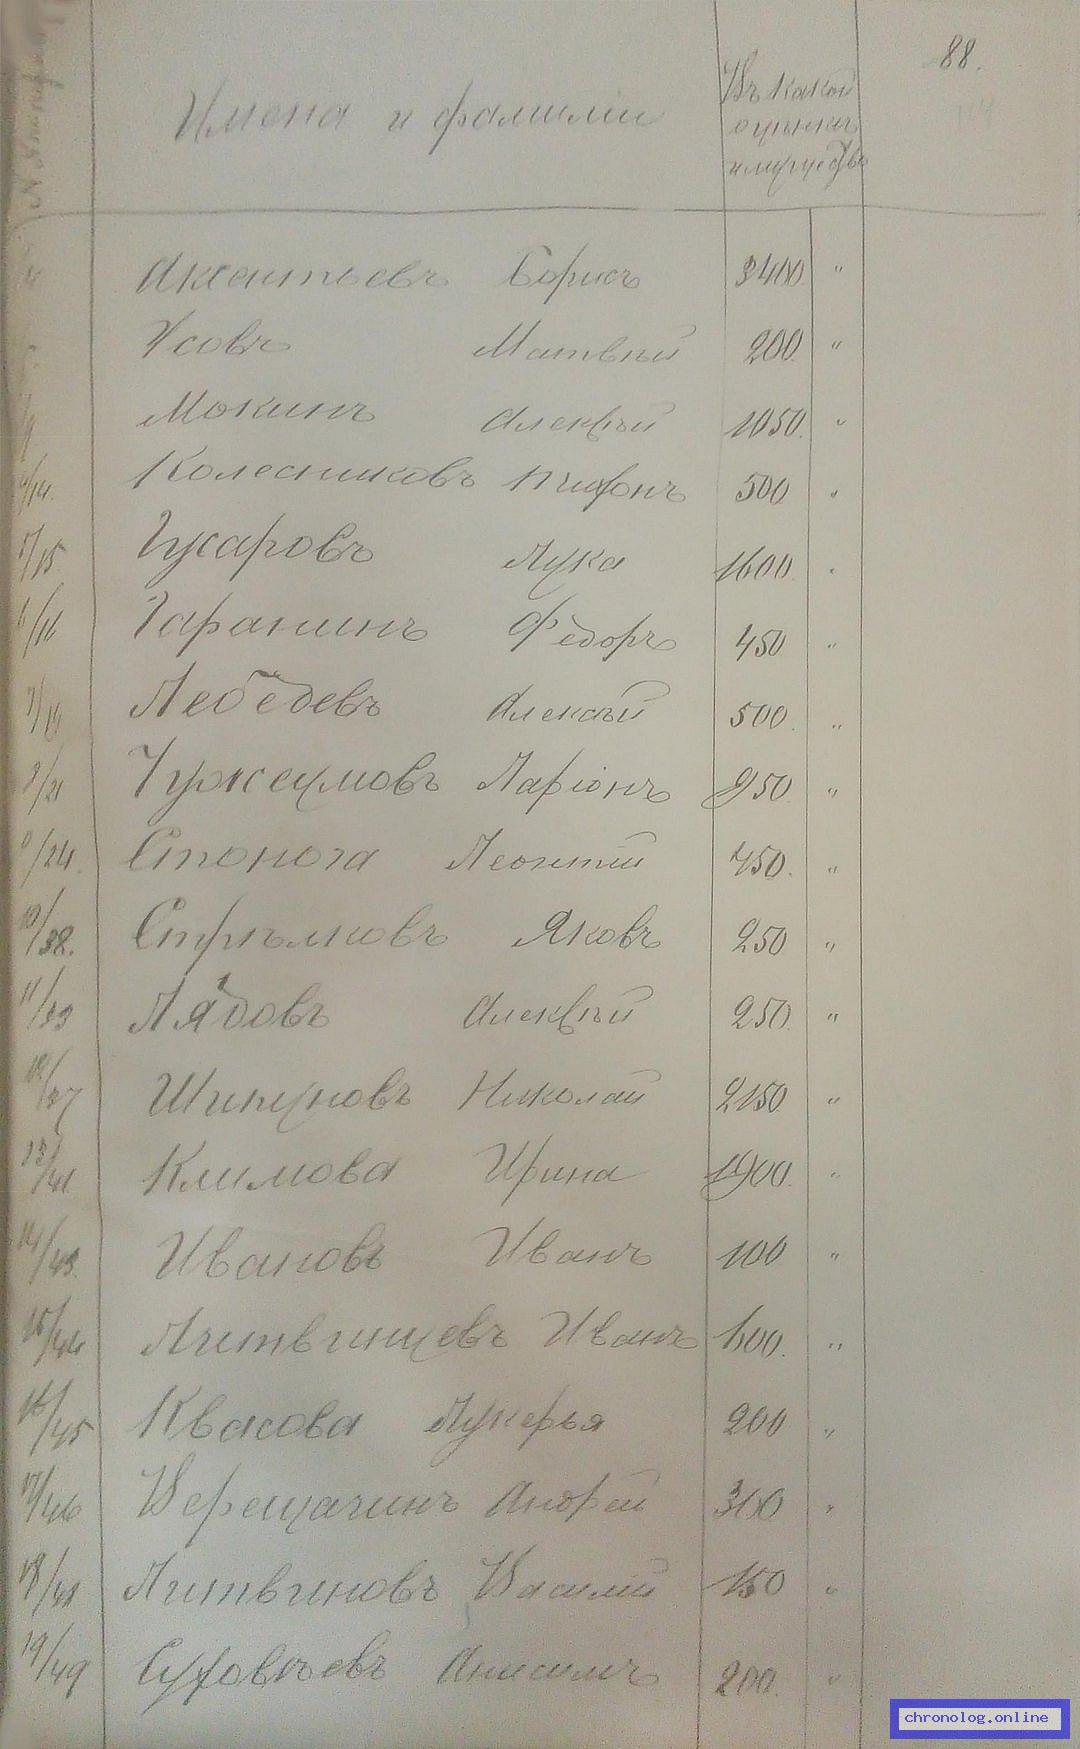 88.
Имена и фамиліи
Въ какой
оцѣнкѣ
имущество
Аксентьевъ Борисъ 3400 "
Усовъ Матвѣй 200 "
Мокинъ Алексѣй 1050 "
4/14. Колесниковъ Тифонъ 500 "
5/15 Гусаровъ Лука 1600 "
6/16 Гаранинъ Федоръ 450 "
Лебедевъ Алексѣй 500 "
8/21 Чужеумовъ Ларіонъ 950 "
9/24. Стонога Леонтій 450. "
10/38. Стрѣлковъ Яковъ 250 "
11/39 Лядовъ Алексѣй 250 "
Шипуновъ Николай 2150 "
13/41 Климова Ирина 1900. "
14/43. Ивановъ Иванъ 100 "
15/44 Литвинцевъ Иванъ 600. "
16/45 Квасова Лукерья 200 "
17/46 Верещагинъ Андрей 300 "
Литвиновъ Василій 150 "
19/49 Суховѣевъ Анисимъ 200. "
chronolog.online